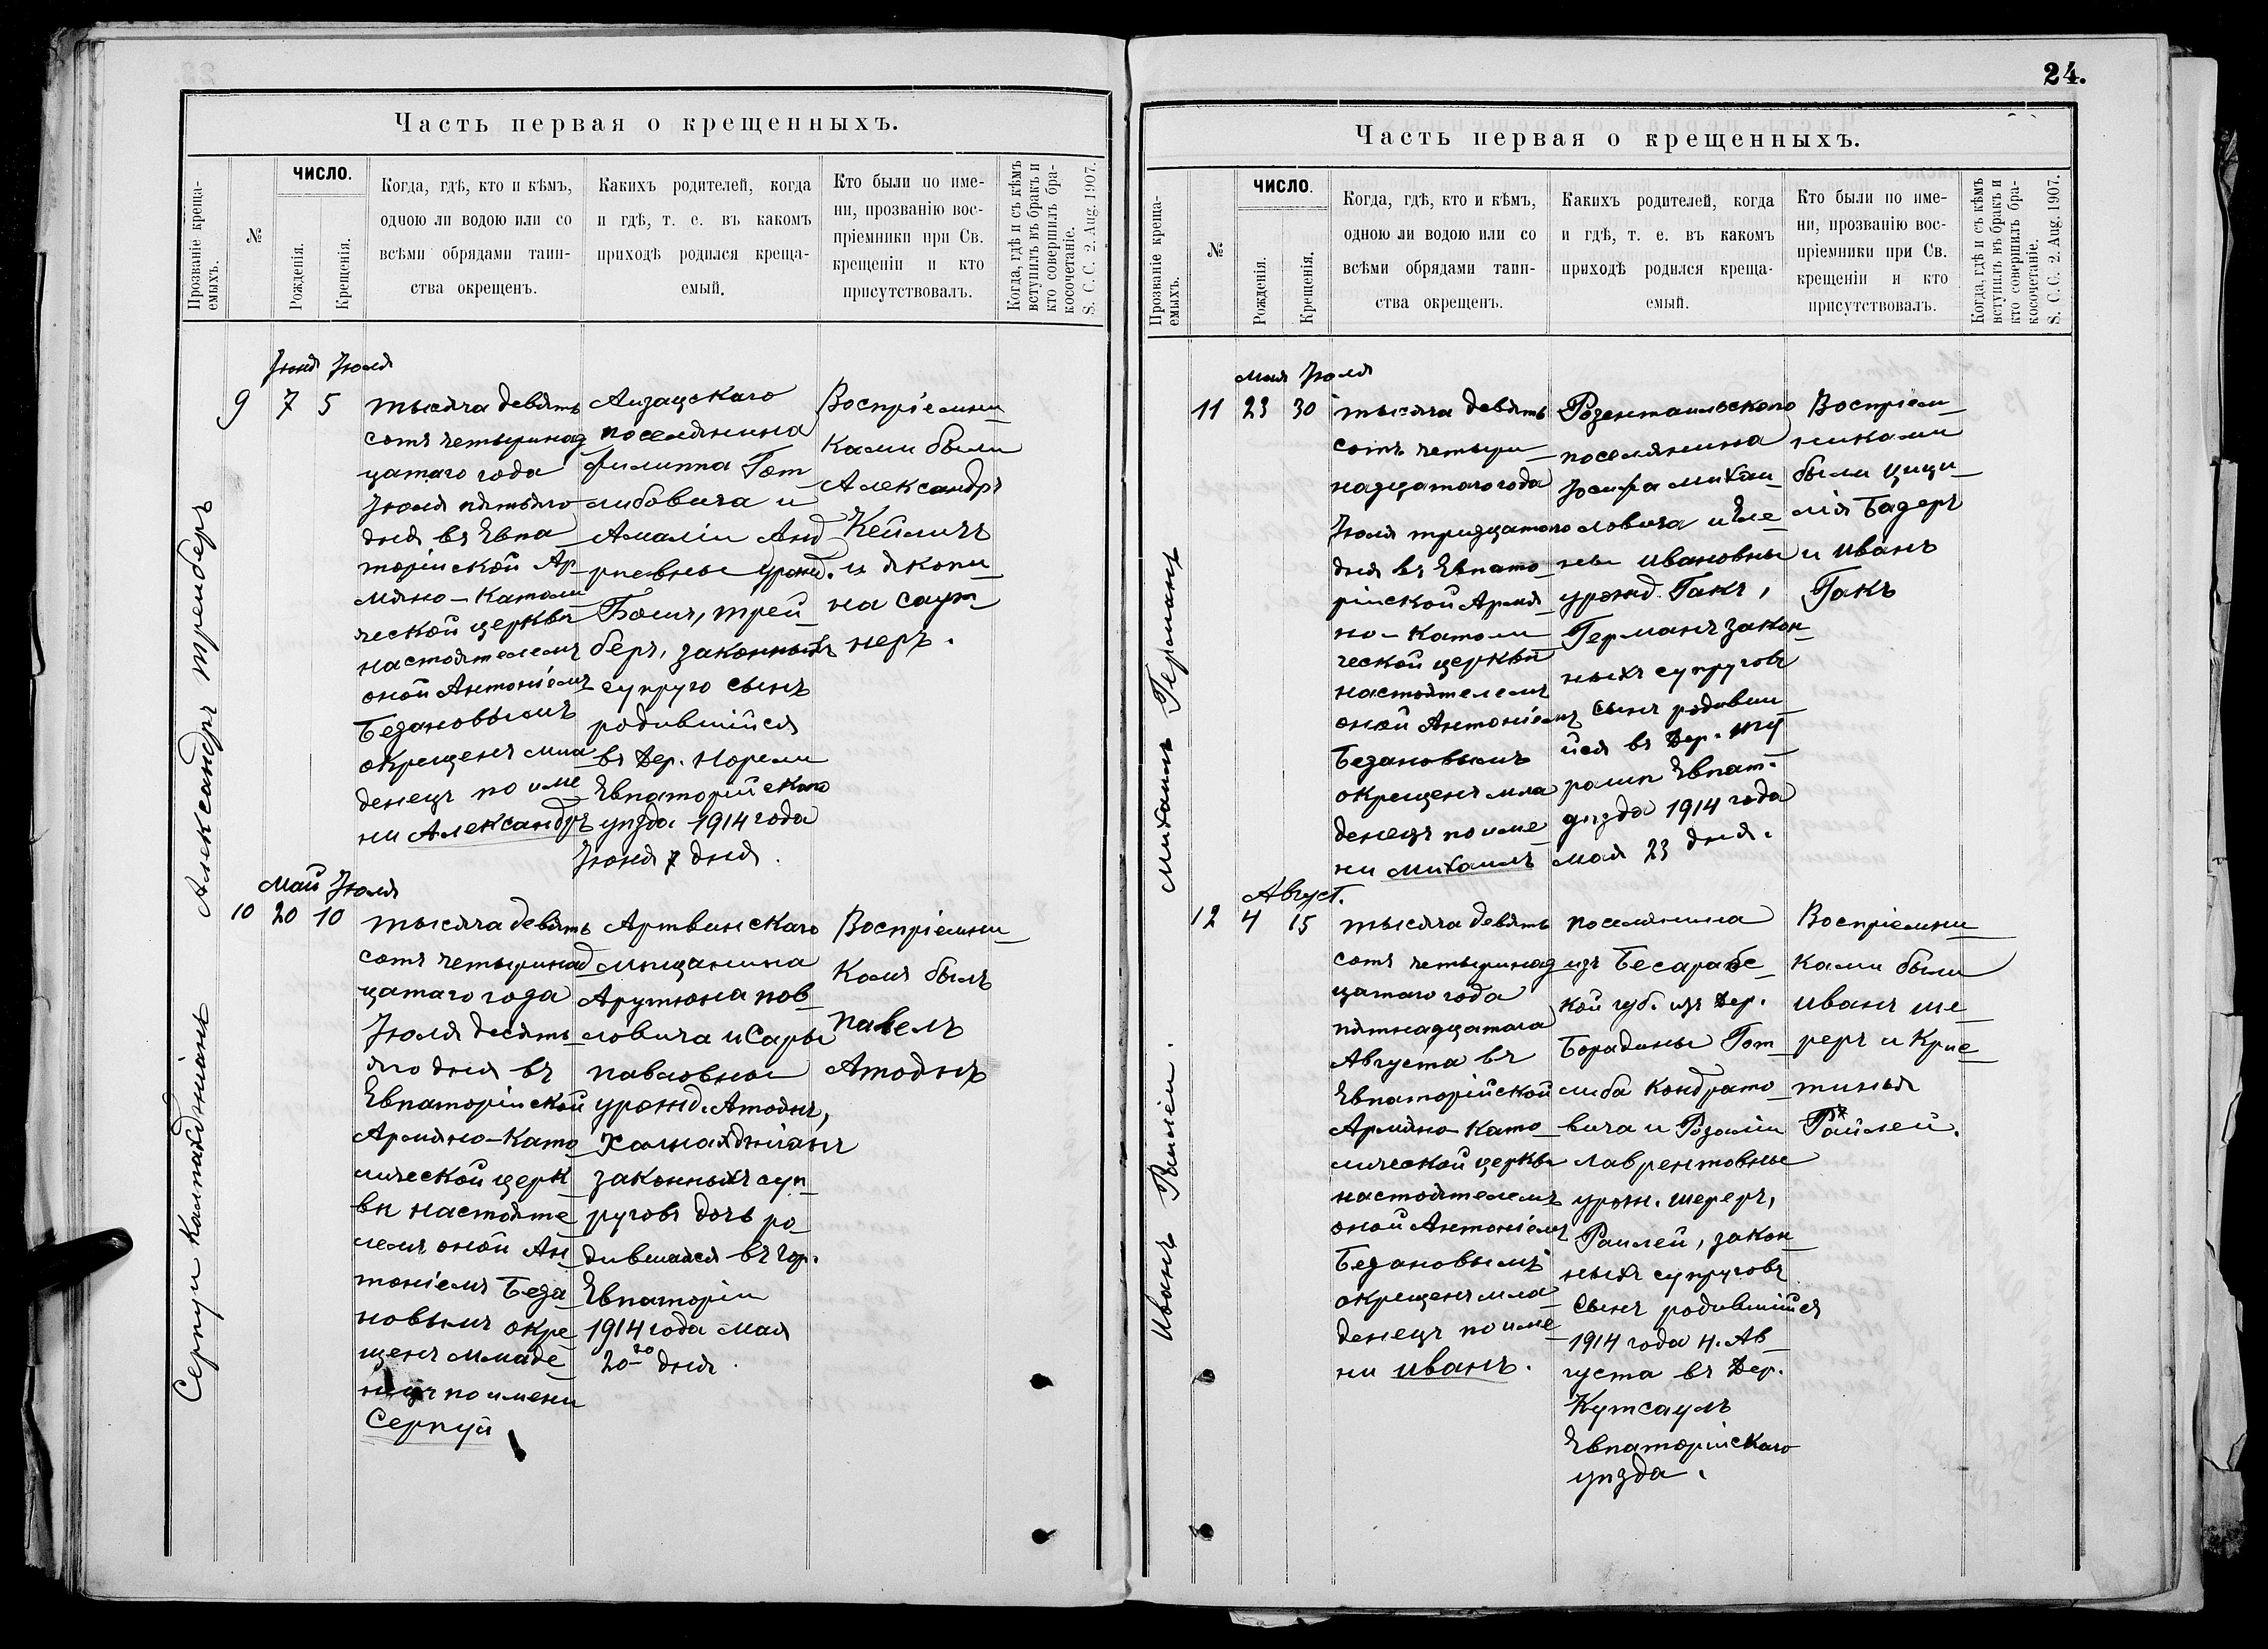 Часть первая о крещенныхъ.
Прозваніе креща-
емыхъ.
№
ЧИСЛО.
Рожденія.
Крещенія.
Когда, гдѣ, кто и кѣмъ,
одною ли водою или со
всѣми обрядами таин-
ства окрещенъ.
Какихъ родителей, когда
и гдѣ, т. е. въ какомъ
приходѣ родился креща-
емый.
Кто были по име-
ни, прозванію вос-
пріемники при Св.
крещеніи и кто
присутствовалъ.
Когда, гдѣ и съ кѣмъ
вступилъ въ бракъ и
кто совершилъ бра-
косочетаніе.
S. C. C. 2. Aug. 1907.
Александръ Трейберъ
Іюня Іюля
9 7 5
тысяча девять
сотъ четыринад
цатаго года
Іюля пятаго
дня въ Евпа
торійской Ар-
мяно-Католи
ческой церкви
настоятелемъ
оной Антоніемъ
Безановымъ
окрещенъ мла
денецъ по име
ни Александръ
поселянина
Филиппа Гот
либовича и
Амаліи Анд
реевны урожд.
Бешъ, Трей
беръ, законныхъ
супруго сынъ
родившійся
въ дер.
Евпаторійскаго
уѣзда 1914 года
Іюня 7 дня.
Воспріемни
ками были
Александръ
и Якоби
на
неръ.
Серпуи
Май Іюля
10 20 10
тысяча девять
сотъ четыринад
цатаго года
Іюля десять
яго дня въ
Евпаторійской
Армяно-Като
лической церк
вѣ настояте
лемъ оной Ан
тоніемъ Беза
новымъ окре
щенъ младе
нецъ по имени
Серпуи
Артвинскаго
мѣщанина
Арутюна Пав
ловича и Сары
Павловны
урожд. Атоянъ,
законныхъ суп
руговъ дочь ро
дившаяся въ гор.
Евпаторіи
1914 года Мая
20 20 дня.
Воспріемни
комъ былъ
Павелъ
Атоянъ
24.
Часть первая о крещенныхъ.
Прозваніе креща-
емыхъ.
№
ЧИСЛО.
Рожденія.
Крещенія.
Когда, гдѣ, кто и кѣмъ,
одною ли водою или со
всѣми обрядами таин-
ства окрещенъ.
Какихъ родителей, когда
и гдѣ, т. е. въ какомъ
приходѣ родился креща-
емый.
Кто были по име-
ни, прозванію вос-
пріемники при Св.
крещеніи и кто
присутствовалъ.
Когда, гдѣ и съ кѣмъ
вступилъ въ бракъ и
кто совершилъ бра-
косочетаніе.
S. C. C. 2. Aug. 1907.
Михаилъ Германъ
Мая Іюля
11 23 30
тысяча девять
сотъ четыри
надцатаго года
Іюля тридцатаго
дня въ Евпато
рійской Армя
но-Католи
ческой церкви
настоятелемъ
оной Антоніемъ
Безановымъ
окрещенъ мла
денецъ по име
ни Михаилъ
Розентальскаго
поселянина
Іосифа Михаи
ловича и Еле
ны Ивановны
урожд. Гакъ,
Германъ закон
ныхъ супруговъ
сынъ родивши
йся въ дер.
Евпат.
уѣзда 1914 года
Мая 23 дня.
Воспріем
никами
были Цици
лія Бадеръ
и Иванъ
Гакъ
Иванъ Раилеи.
Август.
12 4 15
тысяча девять
сотъ четыринад
цатаго года
пятнадцатаго
Августа въ
Евпаторійской
Армяно-Като
лической церкви
настоятелемъ
оной Антоніемъ
Безановымъ
окрещенъ мла
денецъ по име
ни Иванъ.
поселянина
изъ Бесарабс
кой губ. изъ дер.
Борадины Гот
либа Кондрато
вича и Розаліи
Лаврентовны
урож. Шереръ,
Раилеи, закон
ныхъ супруговъ
сынъ родившійся
1914 года 4. Ав
густа въ дер.
Кутсаулъ
Евпаторійскаго
уѣзда.
Воспріемни
ками были
Иванъ Ше
реръ и Крис
тинья
Райлей.